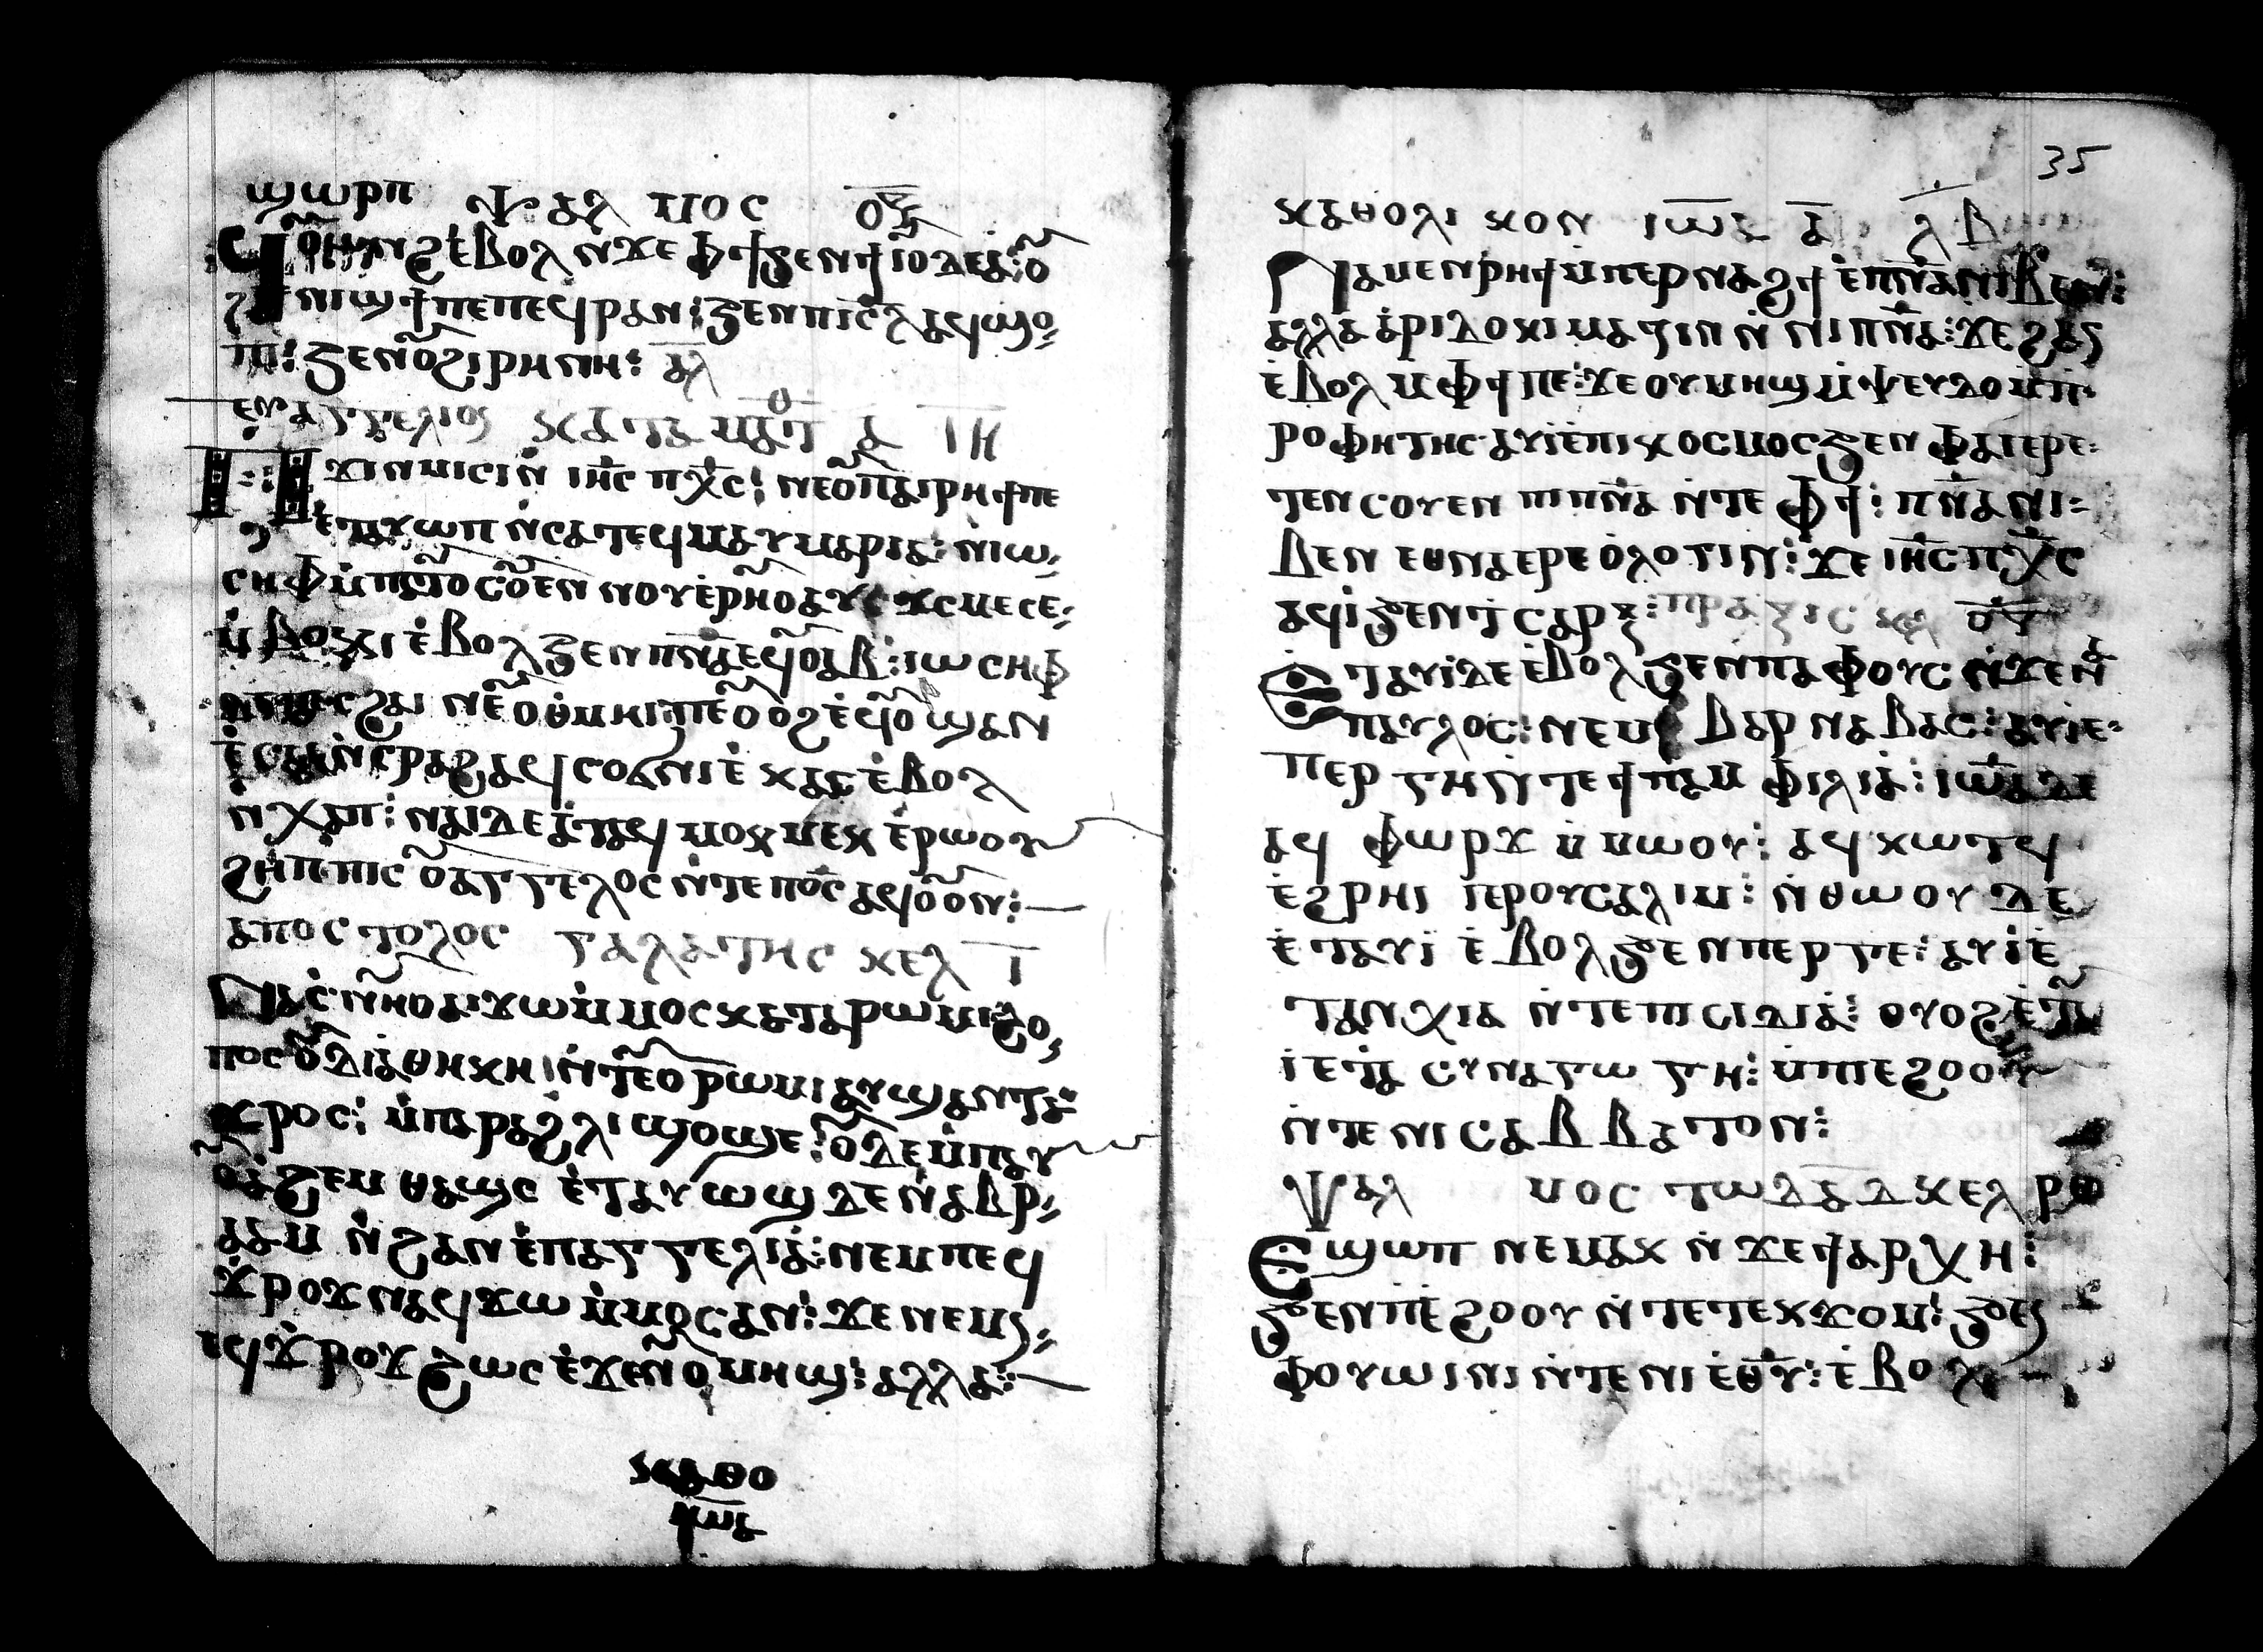 ϣⲱⲣⲡ ⲯⲁⲗ ⲙⲟⲥ ⲟⲉ̅
ϥⲟⲩⲱⲛϩ ⲉ̀ⲃⲟⲗ ⲛϫⲉ ⲫϯ ϧⲉⲛ ϯⲓⲟⲩⲇⲉⲁ: ⲟⲩ
ⲛⲓϣϯ ⲡⲉ ⲡⲉϥⲣⲁⲛ: ϧⲉⲛ ⲡⲓⲥ̅ⲗ ⲁϥϣⲟ⸗
ⲡⲓ: ϧⲉⲛ ⲟⲩϩⲓⲣⲏⲛⲏ: ⲁ̅ⲗ
ⲉⲩⲁⲅⲅⲉⲗⲓⲟⲥ ⲕⲁⲧⲁ ⲙⲁⲧ ⲁ ⲓ̅ⲏ̅
ⲡϫⲓⲛⲙⲓⲥⲓ ⲛ̀ ⲓⲏ̅ⲥ ⲡⲭ̅ⲥ: ⲛⲉ ⲟⲩⲡⲁⲓⲣⲏϯ ⲡⲉ
ⲉⲧⲁⲩⲱⲡ ⲛ̀ⲥⲁ ⲧⲉϥⲙⲁⲩ ⲙⲁⲣⲓⲁ: ⲛ̀ⲓⲱ⸗
ⲥⲏⲫ ⲙ̀ⲡⲁⲧⲟⲩⲥⲟⲩⲉⲛ ⲛⲟⲩⲉ̀ⲣⲏⲟⲩ ⲁⲩ ϫⲥ ⲙⲉⲥⲉ⸗
ⲙ̀ⲃⲟⲕⲓ ⲉ̀ⲃⲟⲗ ϧⲉⲛ ⲡⲛ̅ⲁ ⲉϥⲟⲩⲁⲃ: ⲓⲱⲥⲏⲫ
ϩⲁⲓ ⲛⲉ ⲟⲩⲑⲙⲏⲓ ⲡⲉ ⲟⲩⲟϩ ⲉ̀ϥⲟⲩⲱϣ ⲁⲛ
ⲁϥⲥⲟϭⲛⲓ ⲉ̀ ⲭⲁⲥ ⲉ̀ⲃⲟⲗ
ⲛ̀ⲭⲱⲡ: ⲛⲁⲓ ⲇⲉ ⲉ̀ⲧⲁϥ ⲙⲟⲕⲙⲉⲕ ⲉ̀ⲣⲱⲟⲩ
ϩⲏⲡⲡⲓⲥ ⲟⲩⲁⲅⲅⲉⲗⲟⲥ ⲛ̀ⲧⲉ ⲡⲟ̅ⲥ ⲁϥⲟⲩⲟⲛ:
ⲁⲡⲟⲥⲧⲟⲗⲟⲥ ⲅⲁⲗⲁⲧⲏⲥ ⲕⲉⲗ ⲓ̅
ⲛⲁⲥⲛⲏⲟⲩ ⲁⲓϫⲱ ⲙ̀ⲙⲟⲥ ⲕⲁⲧⲁ ⲣⲱⲙⲓ ϩⲟ⸗
ⲙⲟⲥ ⲟⲩⲇⲓⲁⲑⲏⲕⲏ ⲛ̀ⲧⲉ ⲟⲩⲣⲱⲙⲓ ⲁⲩϣⲁⲛⲧⲁ⸗
ϫⲣⲟⲥ: ⲙ̀ⲡⲁⲣⲁϩⲗⲓ ϣⲟϣⲥ: ⲟⲩⲇⲉ ⲙ̀ⲡⲁⲩ
ⲟⲩⲁϩⲉⲙ ⲑⲁϣⲥ ⲉ̀ⲧⲁⲩⲱϣ ⲇⲉ ⲛ̀ⲁⲃⲣ⸗
ⲁⲁⲙ ⲛ̀ϩⲁⲛⲉ̀ⲡⲁⲅⲅⲉⲗⲓⲁ̀: ⲛⲉⲙ ⲡⲉϥ
ϫ̀ⲣⲟϫ ⲛⲁϥϫⲱ ⲙ̀ⲙⲟⲥ ⲁⲛ: ϫⲉ ⲛⲉⲙ⸗
ⲉϥϫ̀ⲣⲟϫ ϩⲱⲥ ⲉ̀ϫⲉⲛ ⲟⲩⲙⲏϣ: ⲁⲗⲗⲁ:
ⲕⲁⲑⲟ
ⲓⲱ̅ⲁ
35
ⲕⲁⲑⲟⲗⲓⲕⲟⲛ ⲓⲱ̅ⲁ ⲁ̅ ⲗ̅ⲃ
ⲛⲁⲙⲉⲛⲣⲏϯ ⲙ̀ⲡⲉⲣⲛⲁϩϯ ⲉ̀ⲡⲛ̅ⲁ ⲛⲓⲃⲉⲛ:
ⲁⲗⲗⲁ ⲁ̀ⲣⲓⲇⲟⲕⲓⲙⲁⲍⲓⲛ ⲛ̀ ⲛⲓⲡⲛ̅ⲁ: ϫⲉ ϩⲁⲛ
ⲉ̀ⲃⲟⲗ ⲙⲫϯ ⲡⲉ: ϫⲉ ⲟⲩⲙⲏϣ ⲙ̀ⲯⲉⲩⲇⲟⲙ̀ⲡ
ⲣⲟⲫⲏⲧⲏⲥ ⲁⲩⲓ̀ⲉ̀ⲡⲓⲕⲟⲥⲙⲟⲥ ϧⲉⲛ ⲫⲁⲓ ⲉⲣⲉ⸗
ⲧⲉⲛⲥⲟⲩⲉⲛ ⲡⲓⲡⲛ̅ⲁ ⲛ̀ⲧⲉ ⲫϯ: ⲡⲛ̅ⲁ ⲛⲓ⸗
ⲃⲉⲛ ⲉⲑⲛⲁⲉⲣⲉ ⲟ̀ⲗⲟⲅⲓⲛ: ϫⲉ ⲓⲏ̅ⲥ ⲡⲭ̅ⲥ
ⲁϥⲓ̀ ϧⲉⲛ ⲧ̀ⲥⲁⲣⲝ: ⲡⲣⲁⲝⲓⲥ ⲕⲉⲗ ⲟ̅ⲅ
ⲉⲧⲁⲩⲓ̀ ⲇⲉ ⲉ̀ⲃⲟⲗ ϧⲉⲛ ⲡⲁⲫⲟⲩⲥ ⲛ̀ϫⲉ ⲛⲁ
ⲡⲁⲩⲗⲟⲥ: ⲛⲉⲙ ⲃⲁⲣⲛⲁⲃⲁⲥ: ⲁⲩⲓ̀ⲉ⸗
ⲡⲉⲣⲅⲏ ⲛ̀ⲧⲉ ϯⲡⲁⲙⲫⲓⲗⲓⲁ̀: ⲓⲱ̅ⲁ ⲇⲉ
ⲁϥ ⲫⲱⲣϫ ⲙ̀ⲙⲱⲟⲩ: ⲁϥⲕⲱⲧϥ
ⲉ̀ϩⲣⲏⲓ ⲓⲉⲣⲟⲩⲥⲁⲗⲓⲙ: ⲛ̀ⲑⲱⲟⲩ ⲇⲉ
ⲉ̀ⲧⲁⲩⲓ̀ ⲉ̀ⲃⲟⲗ ϧⲉⲛ ⲡⲉⲣⲅⲉ: ⲁⲩⲓ̀ⲉ̀
ⲧⲁⲛⲭⲓⲁ ⲛ̀ⲧⲉ ⲡⲓⲥⲓⲇⲓⲁ̀: ⲟⲩⲟϩ ⲉ̀ⲧⲁⲩ
ⲓ̀ ⲉ̀ϯ ⲥⲩⲛⲁⲅⲱⲅⲏ: ⲙ̀ⲡⲉϩⲟⲟⲩ
ⲛ̀ⲧⲉ ⲛⲓⲥⲁⲃⲃⲁⲧⲟⲛ:
ⲯⲁⲗ ⲙⲟⲥ ⲧⲱ ⲇⲁ̅ⲇ ⲕⲉⲗ ⲣⲑ
ⲉϣⲱⲡ ⲛⲉⲙⲁⲕ ⲛ̀ϫⲉ ϯⲁⲣⲭⲏ:
ϧⲉⲛ ⲡⲉ̀ϩⲟⲟⲩ ⲛ̀ⲧⲉ ⲧⲉⲕϫⲟⲙ: ϧⲉⲛ
ⲫⲟⲩⲱⲓⲛⲓ ⲛ̀ⲧⲉ ⲛⲓⲉ̀ⲑ̅ⲩ: ⲉ̀ⲃⲟⲗ